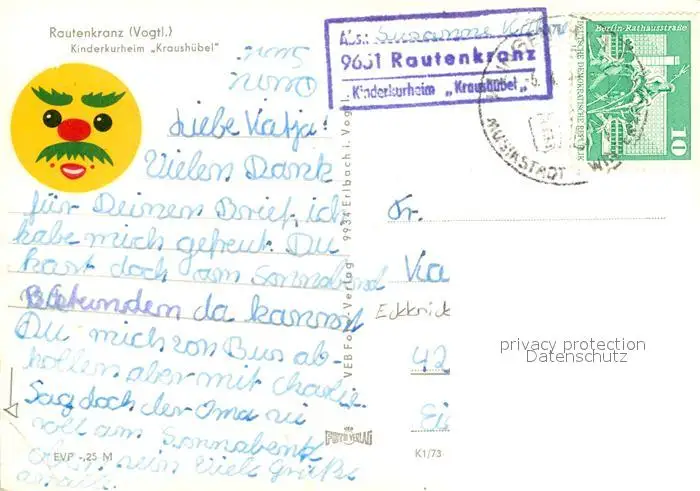 Rautenkranz (Vogtl.)
Kinderkurheim „Kraushübel"
Abs.: Susanne
9651 Rautenkranz
Kinderkurheim „Kraushübel"
Berlin-Rathausstraße
DEUTSCHE DEMOKRATISCHE REPUBLIK
10
MUSIKSTADT
Liebe Katja!
Vielen Dank
für Deinen Brief, ich
habe mich gefreut. Du
hast doch am Sonnabend
da kannst
Du mich von Bus ab-
hollen aber mit Charlie.
Sag doch der Oma
soll am Sonnabend
Viele Grüße
VEB Foto-Verlag 9934 Erlbach i. Vogtl.
Fr.
42
privacy protection
Datenschutz
FOTO VERLAG
EVP -,25 M
K1/73